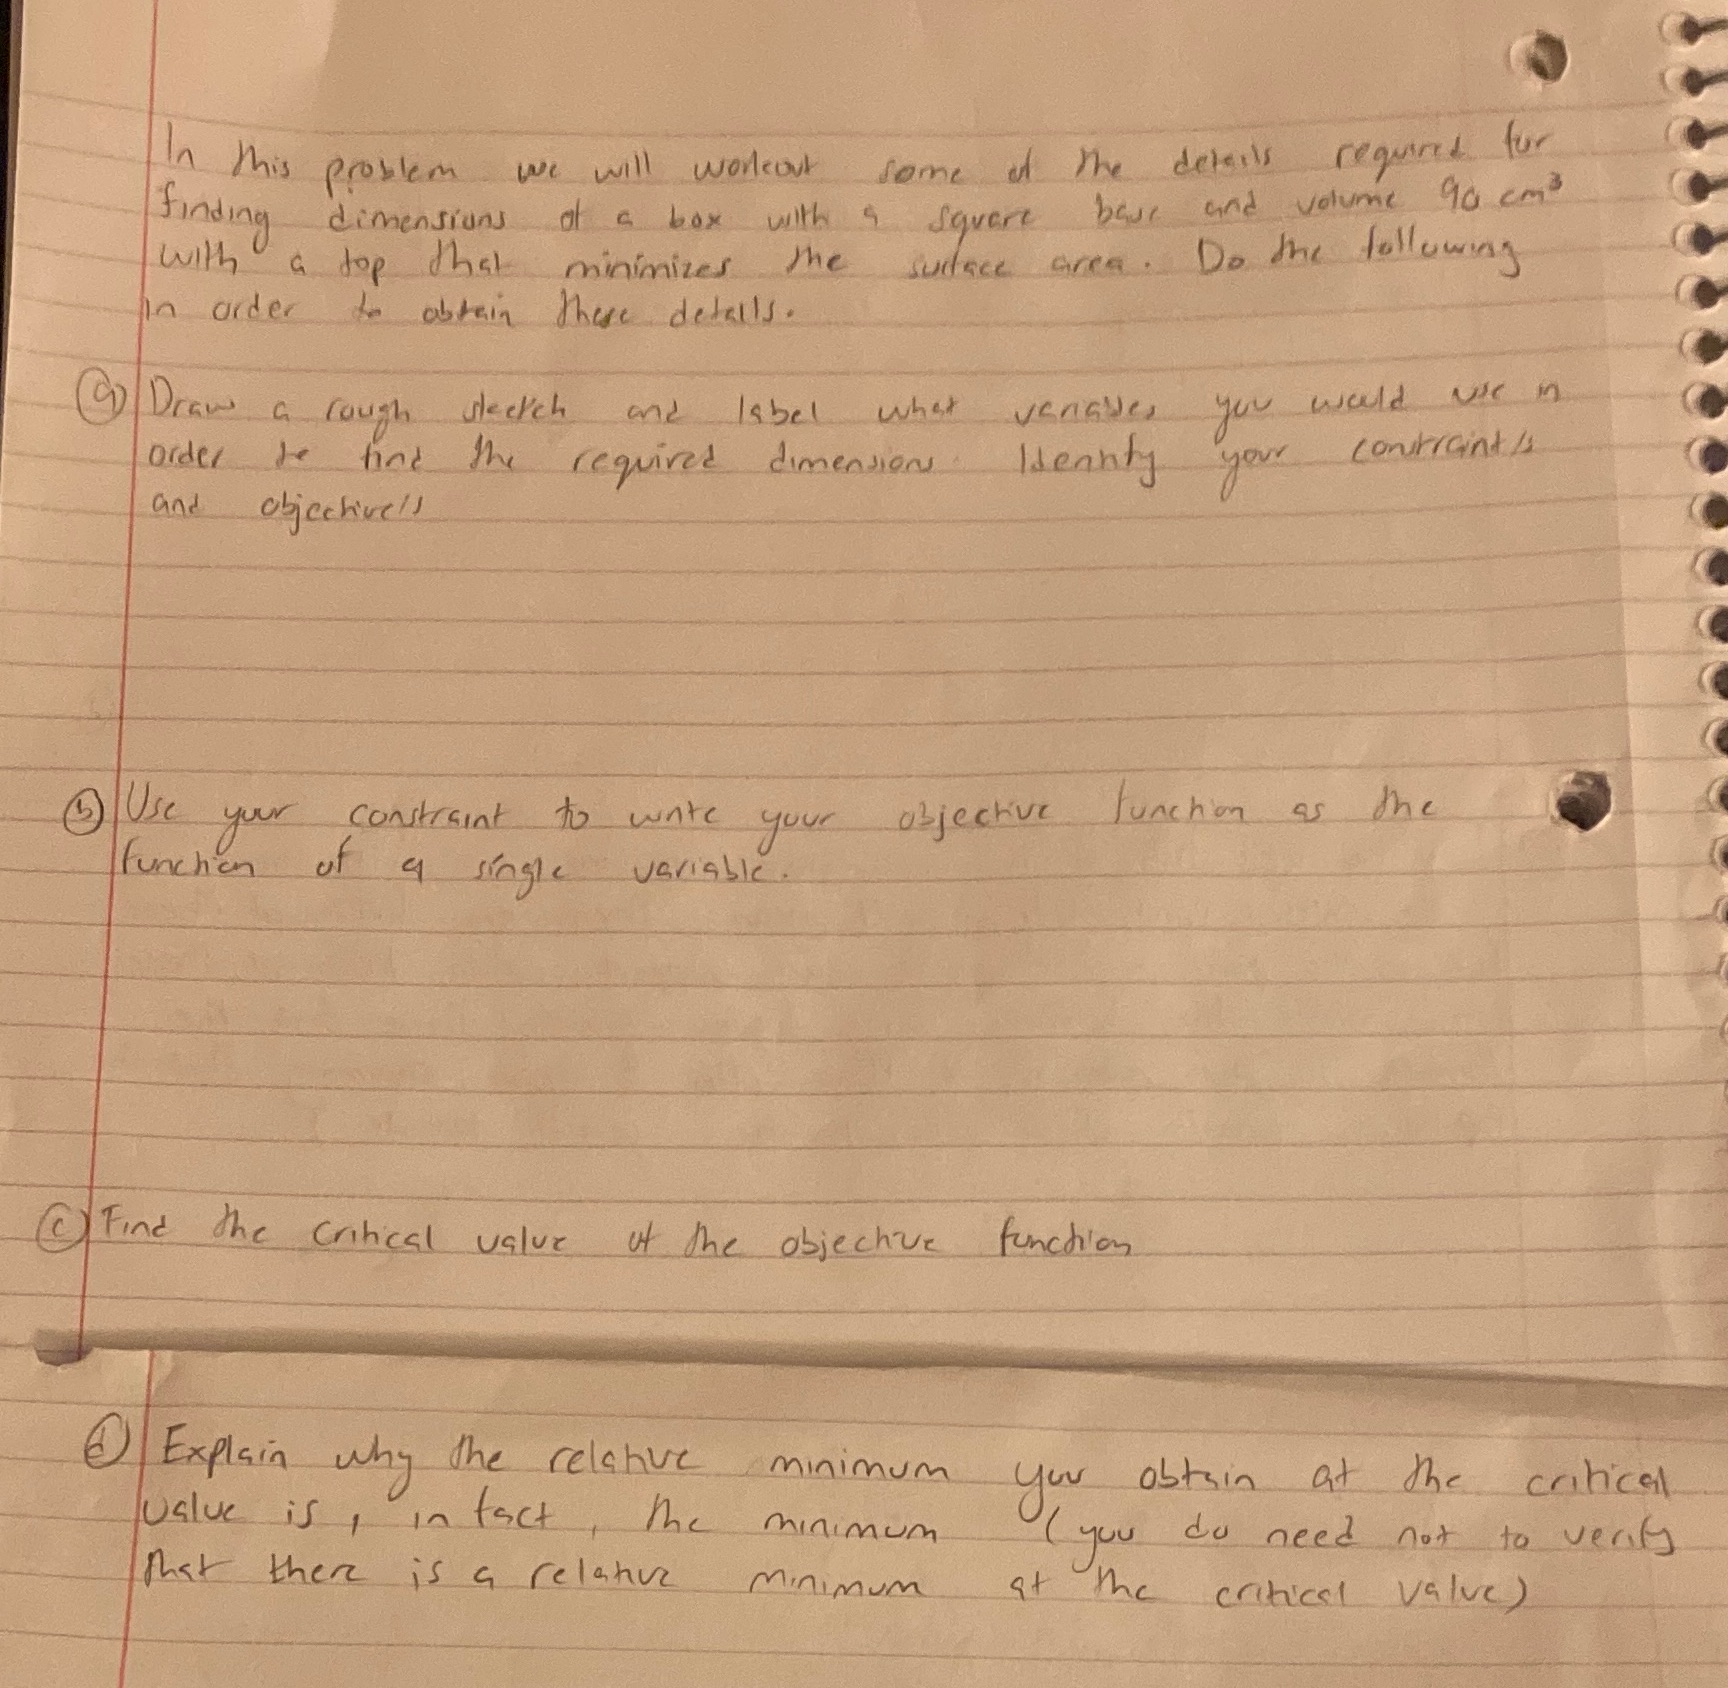 In this problem we will workout some of the details required for
finding dimensions of a box with a square base and volume 90 cm³
with a top that minimizes the surface area. Do the following
in order to obtain these details.
(a) Draw a rough sketch and label what variables you would use in
order to find the required dimensions. Identify your constraint/s
and objective/s
(b) Use your constraint to write your objective function as the
function of a single variable.
(c) Find the critical value of the objective function
(d) Explain why the relative minimum you obtain at the critical
value is, in fact, the minimum (you do need not to verify
that there is a relative minimum at the critical value)